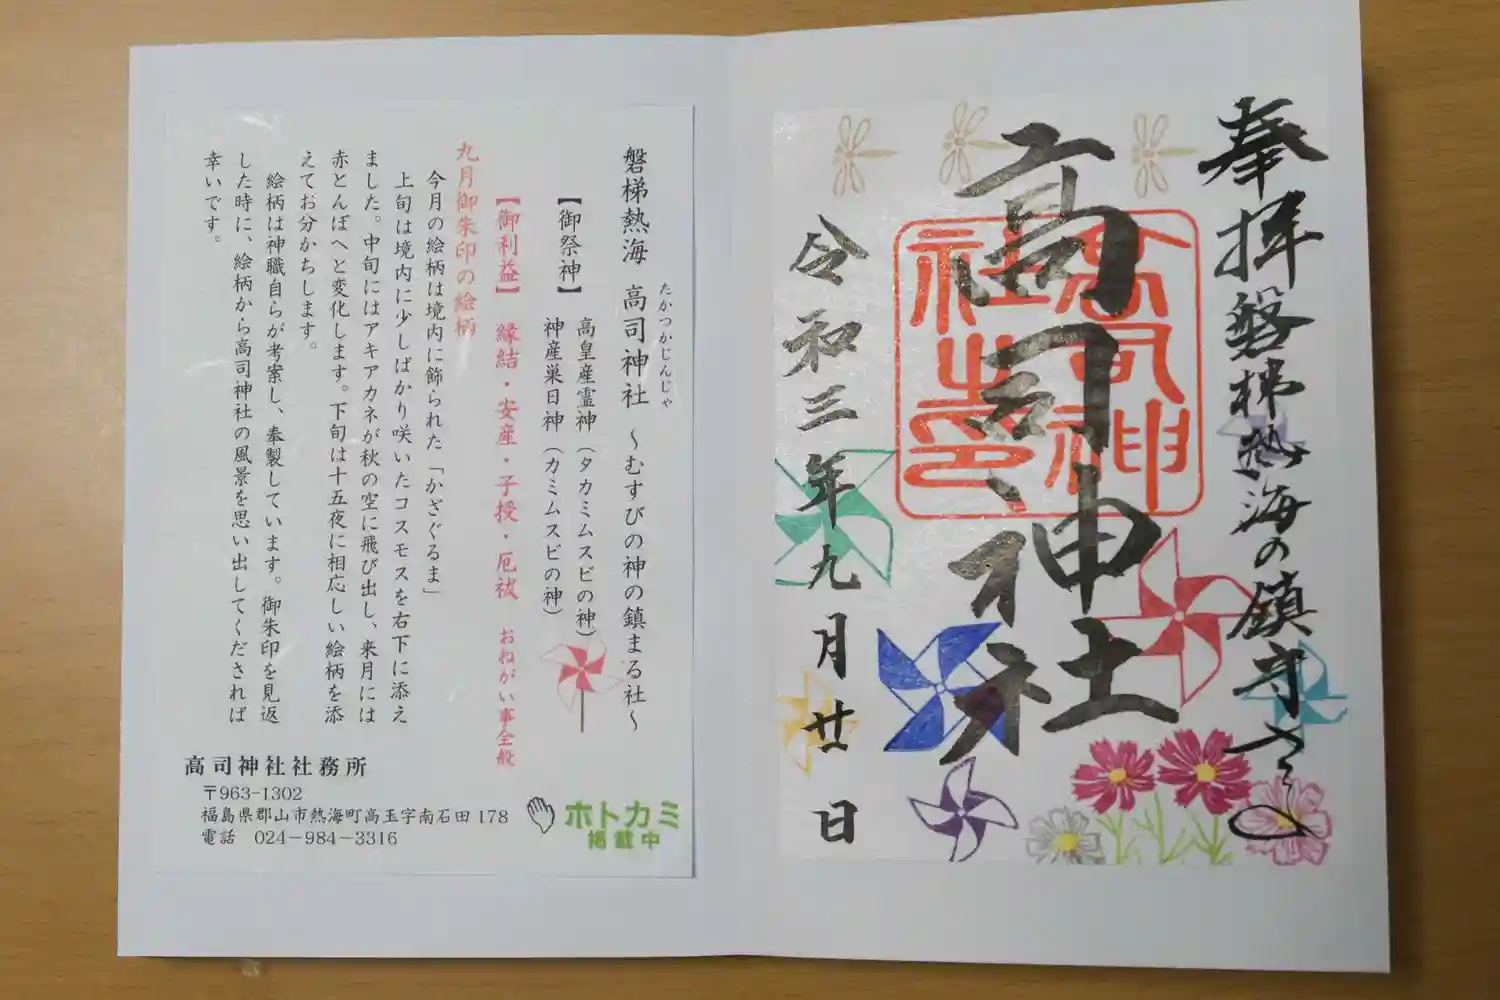 奉拝 磐梯熱海の鎮守さま
高司神社
高司神社之印
令和三年九月廿日
たかつかじんじゃ
磐梯熱海 高司神社 ～むすびの神の鎮まる社～
【御祭神】 高皇産霊神（タカミムスビの神）
神産巣日神（カミムスビの神）
【御利益】 縁結・安産・子授・厄祓 おねがい事全般
九月御朱印の絵柄
今月の絵柄は境内に飾られた「かざぐるま」
上旬は境内に少しばかり咲いたコスモスを右下に添え
ました。中旬にはアキアカネが秋の空に飛び出し、来月には
赤とんぼへと変化します。下旬は十五夜に相応しい絵柄を添
えてお分かちします。
絵柄は神職自らが考案し、奉製しています。御朱印を見返
した時に、絵柄から高司神社の風景を思い出してくだされば
幸いです。
高司神社社務所
〒963-1302
福島県郡山市熱海町高玉字南石田178
電話 024-984-3316
ホトカミ
掲載中